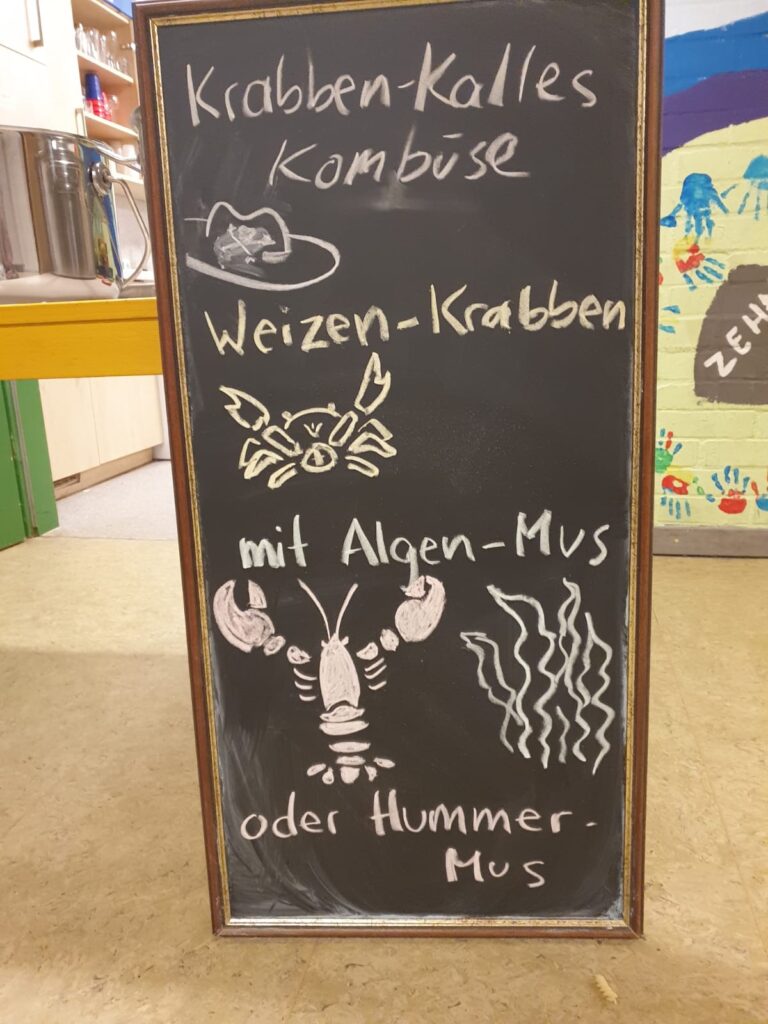 Krabben-Kalles
Kombüse
Weizen-Krabben
mit Algen-Mus
oder Hummer-
Mus